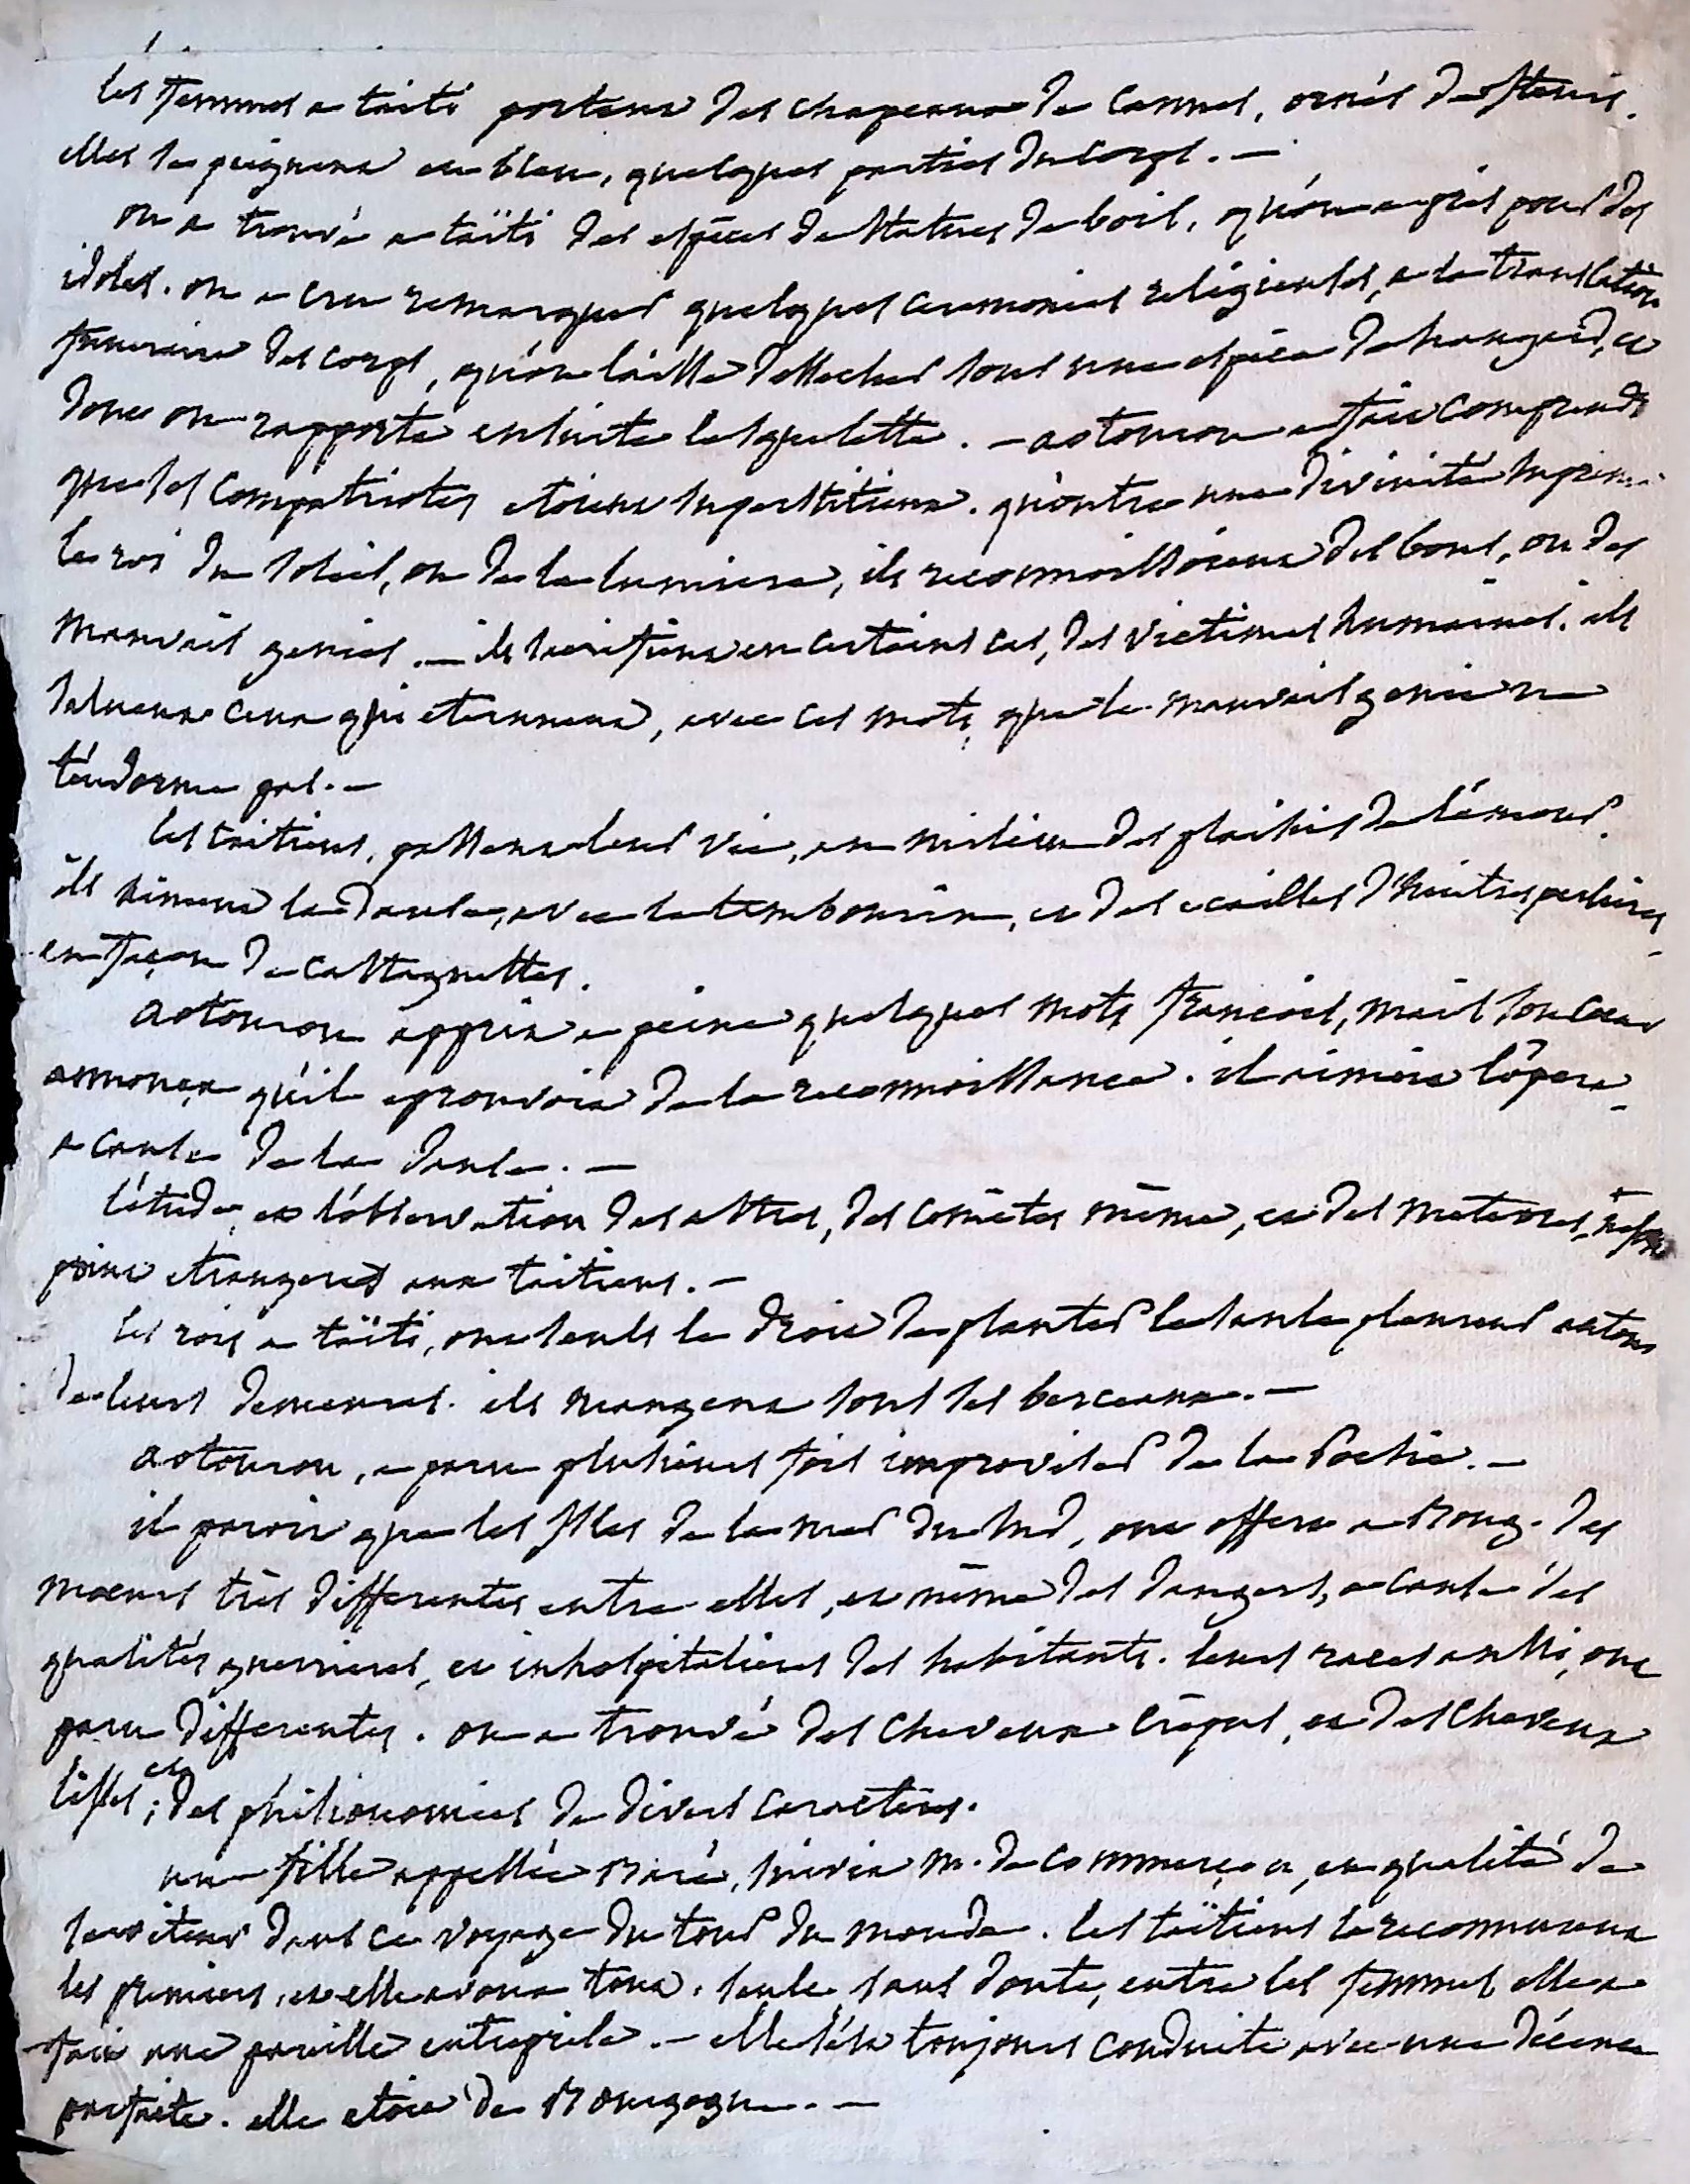 les femmes a taiti portent des chapeaux de cannes, ornés de fleurs.
elles se peignent en bleu, quelques parties du corps. —
on a trouvé a taïti des espèces de statues de bois, qu'on a pris pour des
idoles. on a cru remarquer quelques ceremonies religieuses, a la translation
funeraire des corps, qu'on laisse dessecher sous une espèce de hangard, et
dont on rapporte ensuite le squelette. — aotourou a fait comprendre
que ses compatriotes etoient superstitieux. qu'outre une divinité supreme
le roi du soleil, ou de la lumiere, ils reconnoissoient des bons, ou des
mauvais genies. — ils sacrifient en certains cas, des victimes humaines. ils
saluent ceux qui eternuent, avec ces mots, que le mauvais genie ne
t'endorme pas. —
les taitiens, passent leur vie, au milieu des plaisirs de l'amour.
ils aiment la danse, avec le tambourin, et des ecailles d'huitres perlieres
en façon de castagnettes.
aotourou apprit a peine quelques mots françois, mais son coeur
annonça qu'il eprouvoit de la reconnoissance. il aimoit l'opera
a cause de la danse. —
l'etude, et l'observation des astres, des comètes même, et des meteores,
point etrangeres aux taitiens. —
les rois a taïti, ont seuls le droit de planter le saule pleureur autour
de leurs demeures. ils mangent sous ses berceaux. —
aotourou, a paru plusieurs fois improviser de la Poesie. —
il paroit que les Isles de la mer du sud, ont offert a Boug. des
moeurs très differentes entre elles, et même des dangers, a cause des
qualités guerrieres, et inhospitalieres des habitants. leurs races aussi, ont
paru differentes. on a trouvé des cheveux crêpus, et des cheveux
lisses, et des phisionomies de divers caractères.
une fille appellée Baré, suivit m. de commerçon, en qualité de
serviteur dans ce voyage du tour du monde. les taïtiens la reconnurent
les premiers, et elle avoua tout. seule sans doute, entre les femmes elle a
fait une pareille entreprise. — elle s'est toujours conduite avec une décence
parfaite. elle etoit de Bourgogne. —